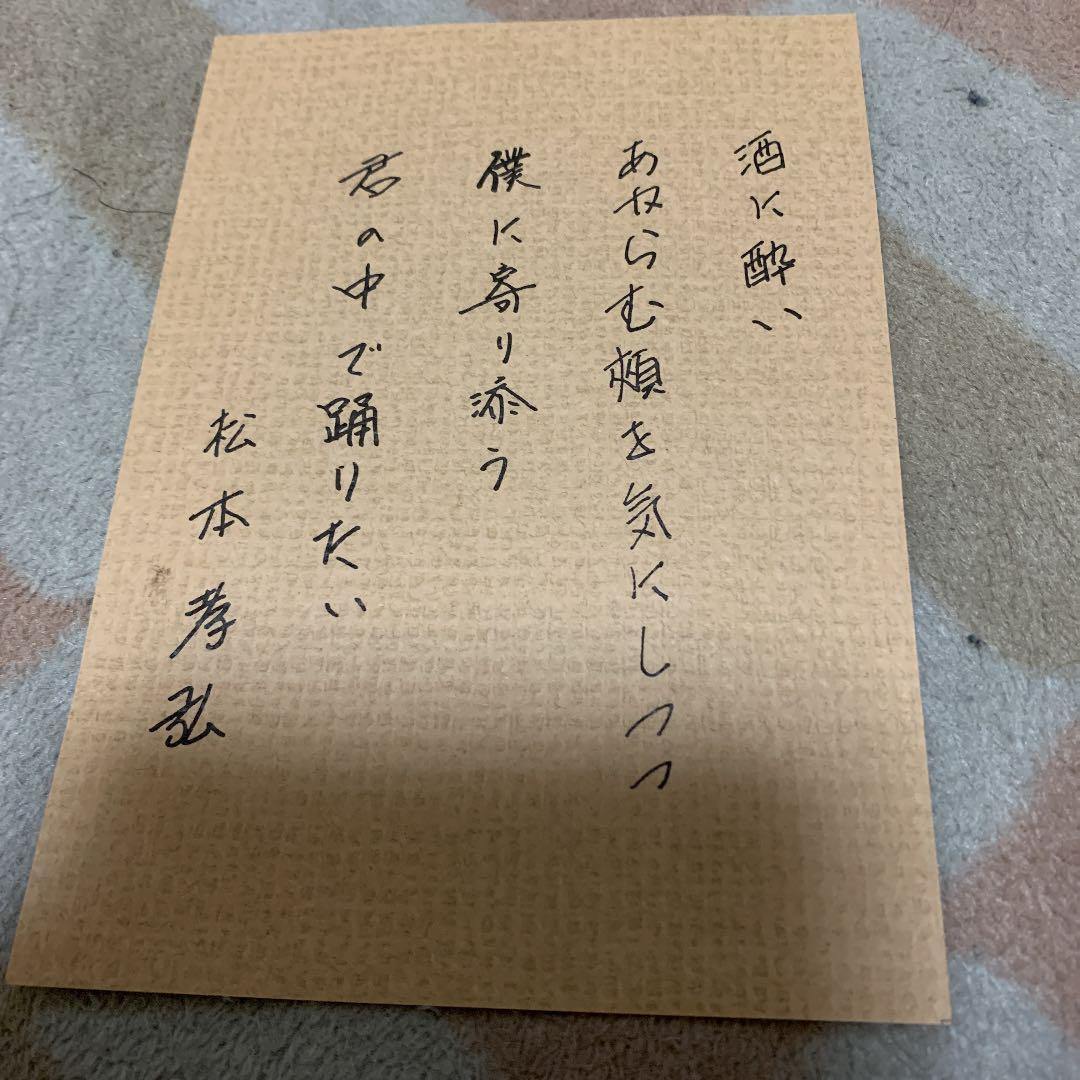 酒に酔い
あからむ頬を気にしつつ
僕に寄り添う
君の中で踊りたい
松本孝弘